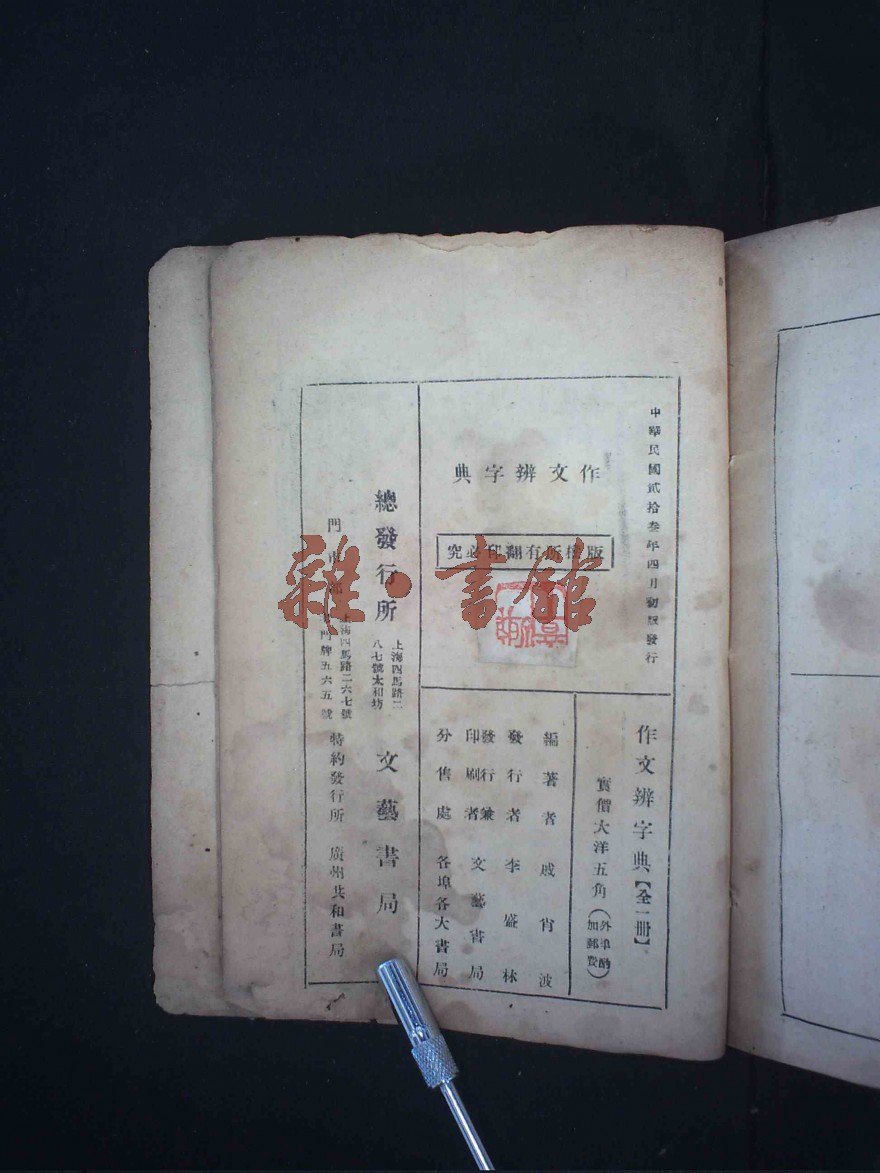 中華民國貳拾叁年四月初版發行
作文辨字典
版權所有翻印必究
作文辨字典【全一册】
實價大洋五角(外埠酌加郵費)
編著者 戚肖波
發行者 李盛林
發行兼印刷者 文藝書局
分售處 各埠各大書局
總發行所 上海四馬路二八七號太和坊 文藝書局
門市部 上海四馬路二六七號門牌五六五號 特約發行所 廣州共和書局
雜·書館